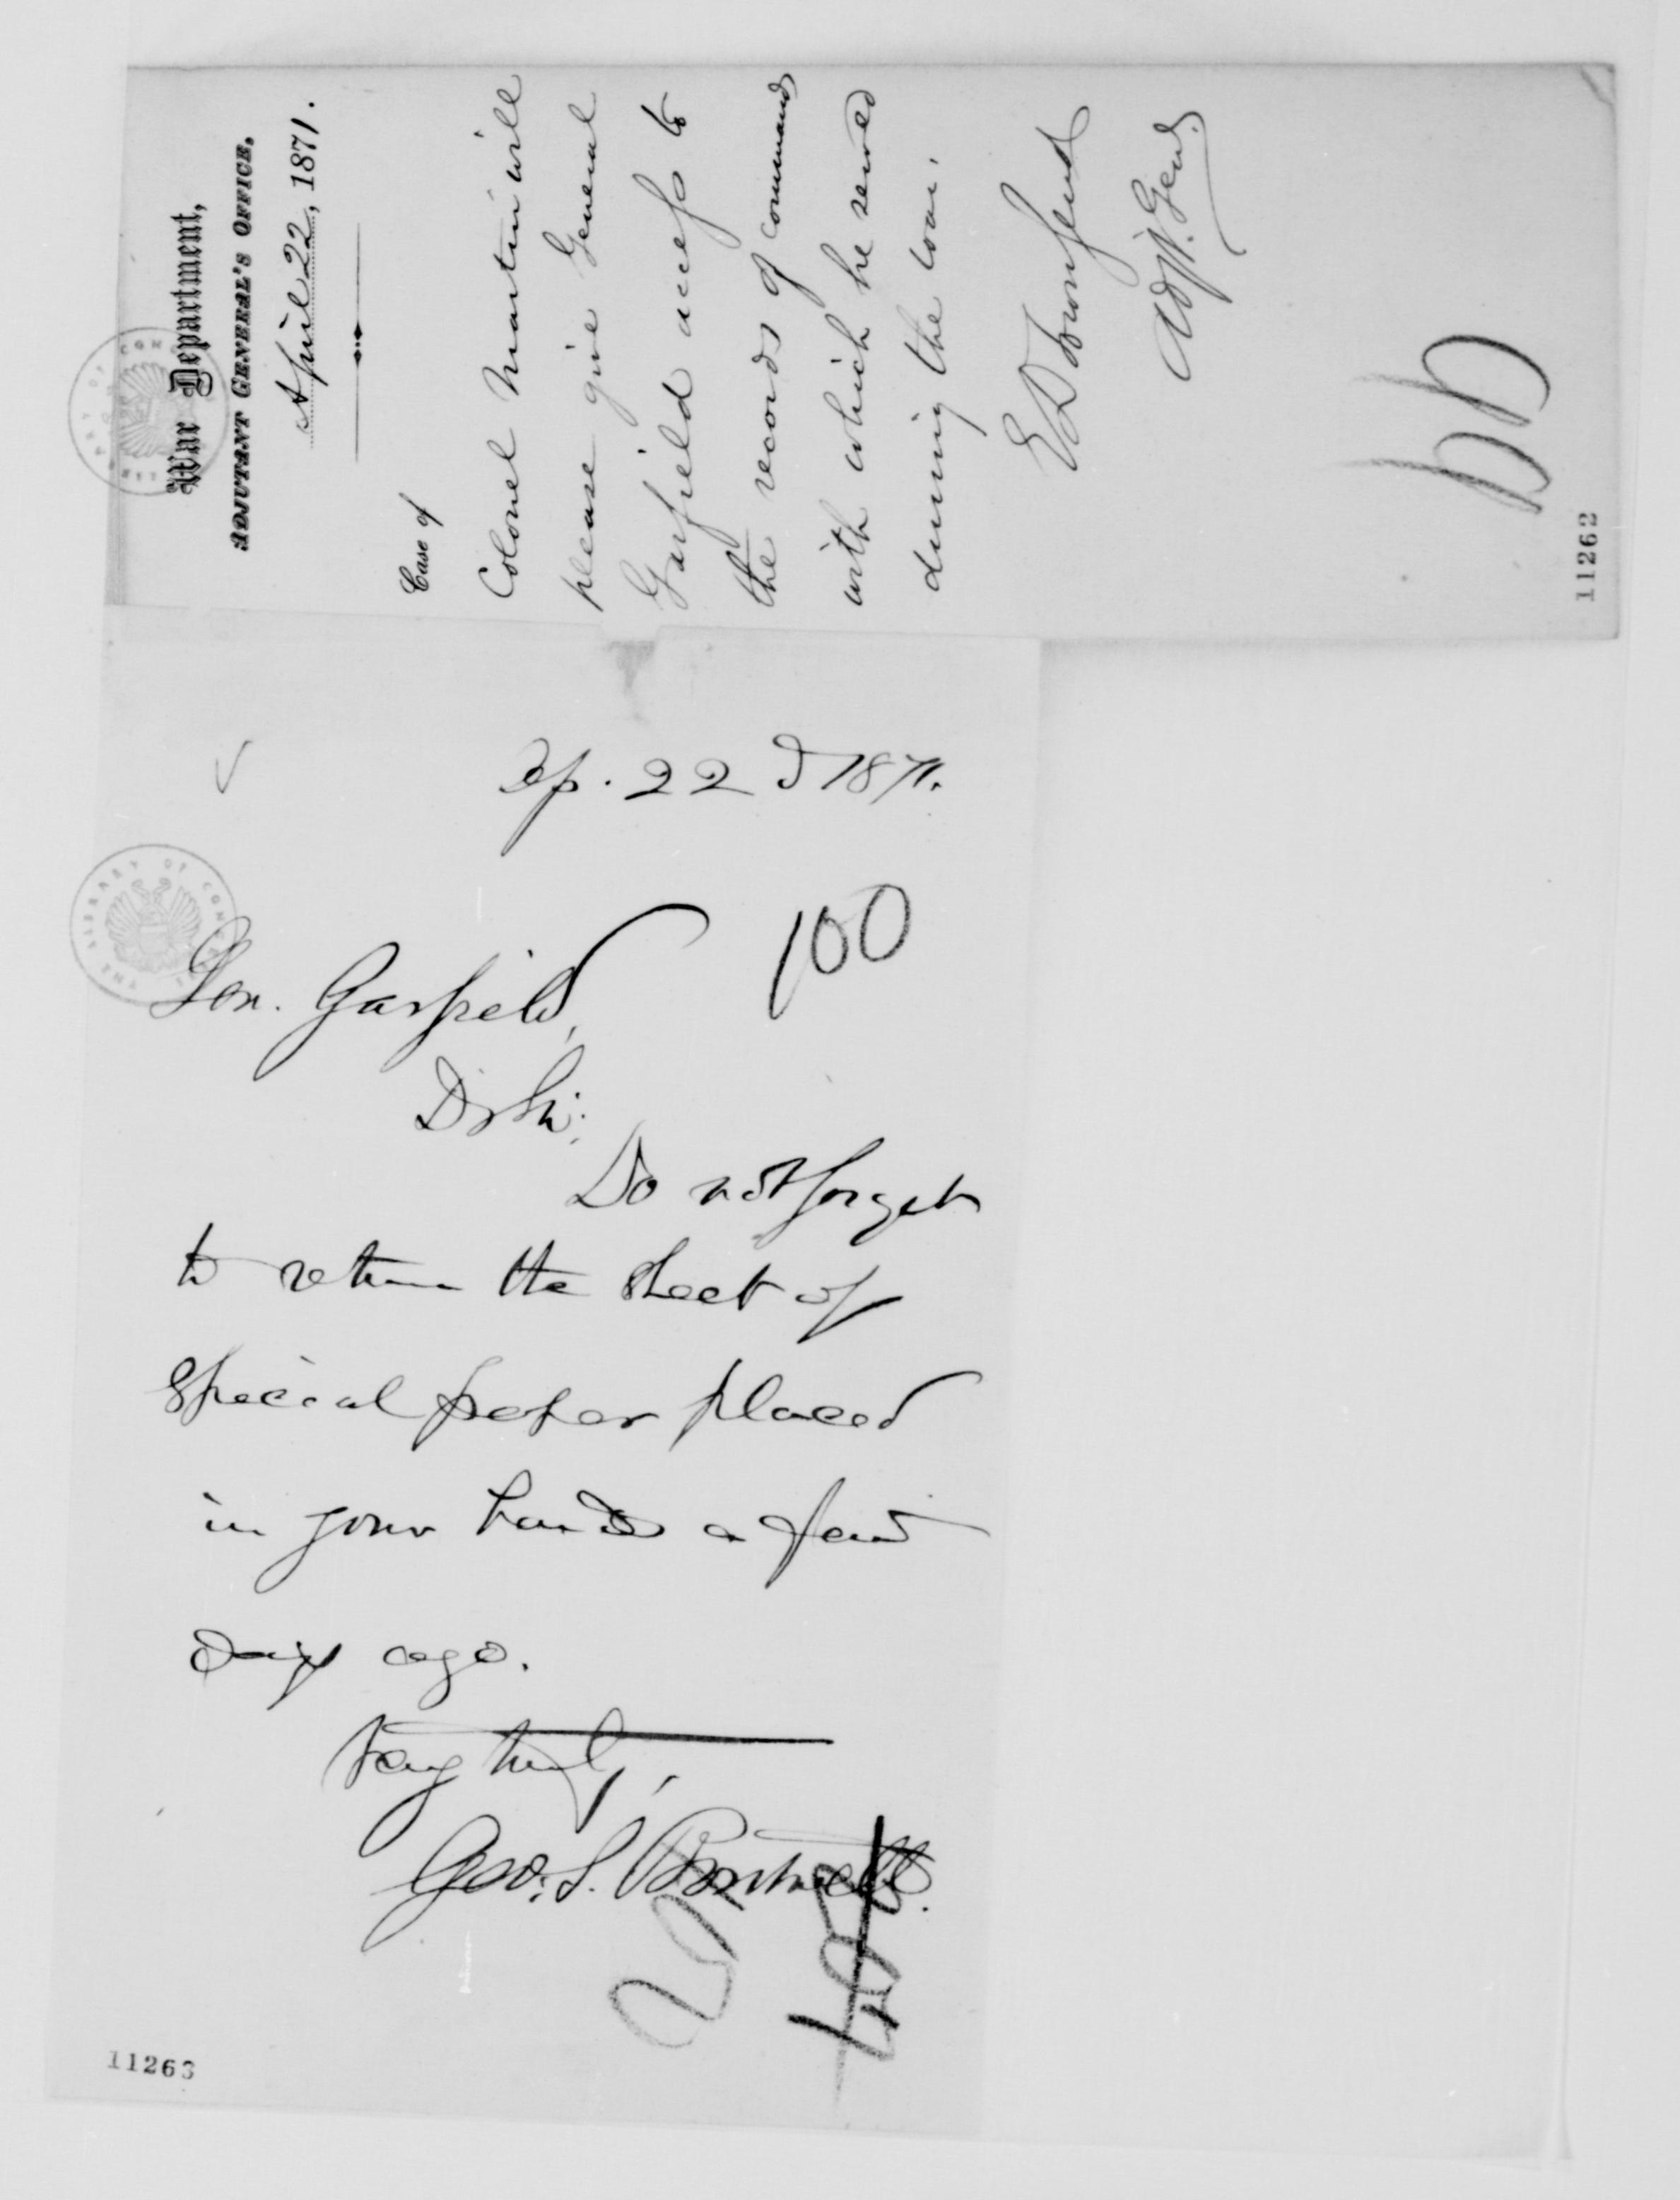 War Department,
ADJUTANT GENERAL'S OFFICE,
April 22, 1871.
Case of
Colonel Martin will
please give General
Garfield access to
the records of commands
with which he served
during the war.
E D Townsend
Adjt. Genl.
99
11262
Ap. 22d 1871.
100
Gen. Garfield,
D Sir:
Do not forget
to return the sheet of
special paper placed
in your hands a few
days ago.
Very truly,
Geo. S. Boutwell.
11263
THE LIBRARY OF CONGRESS